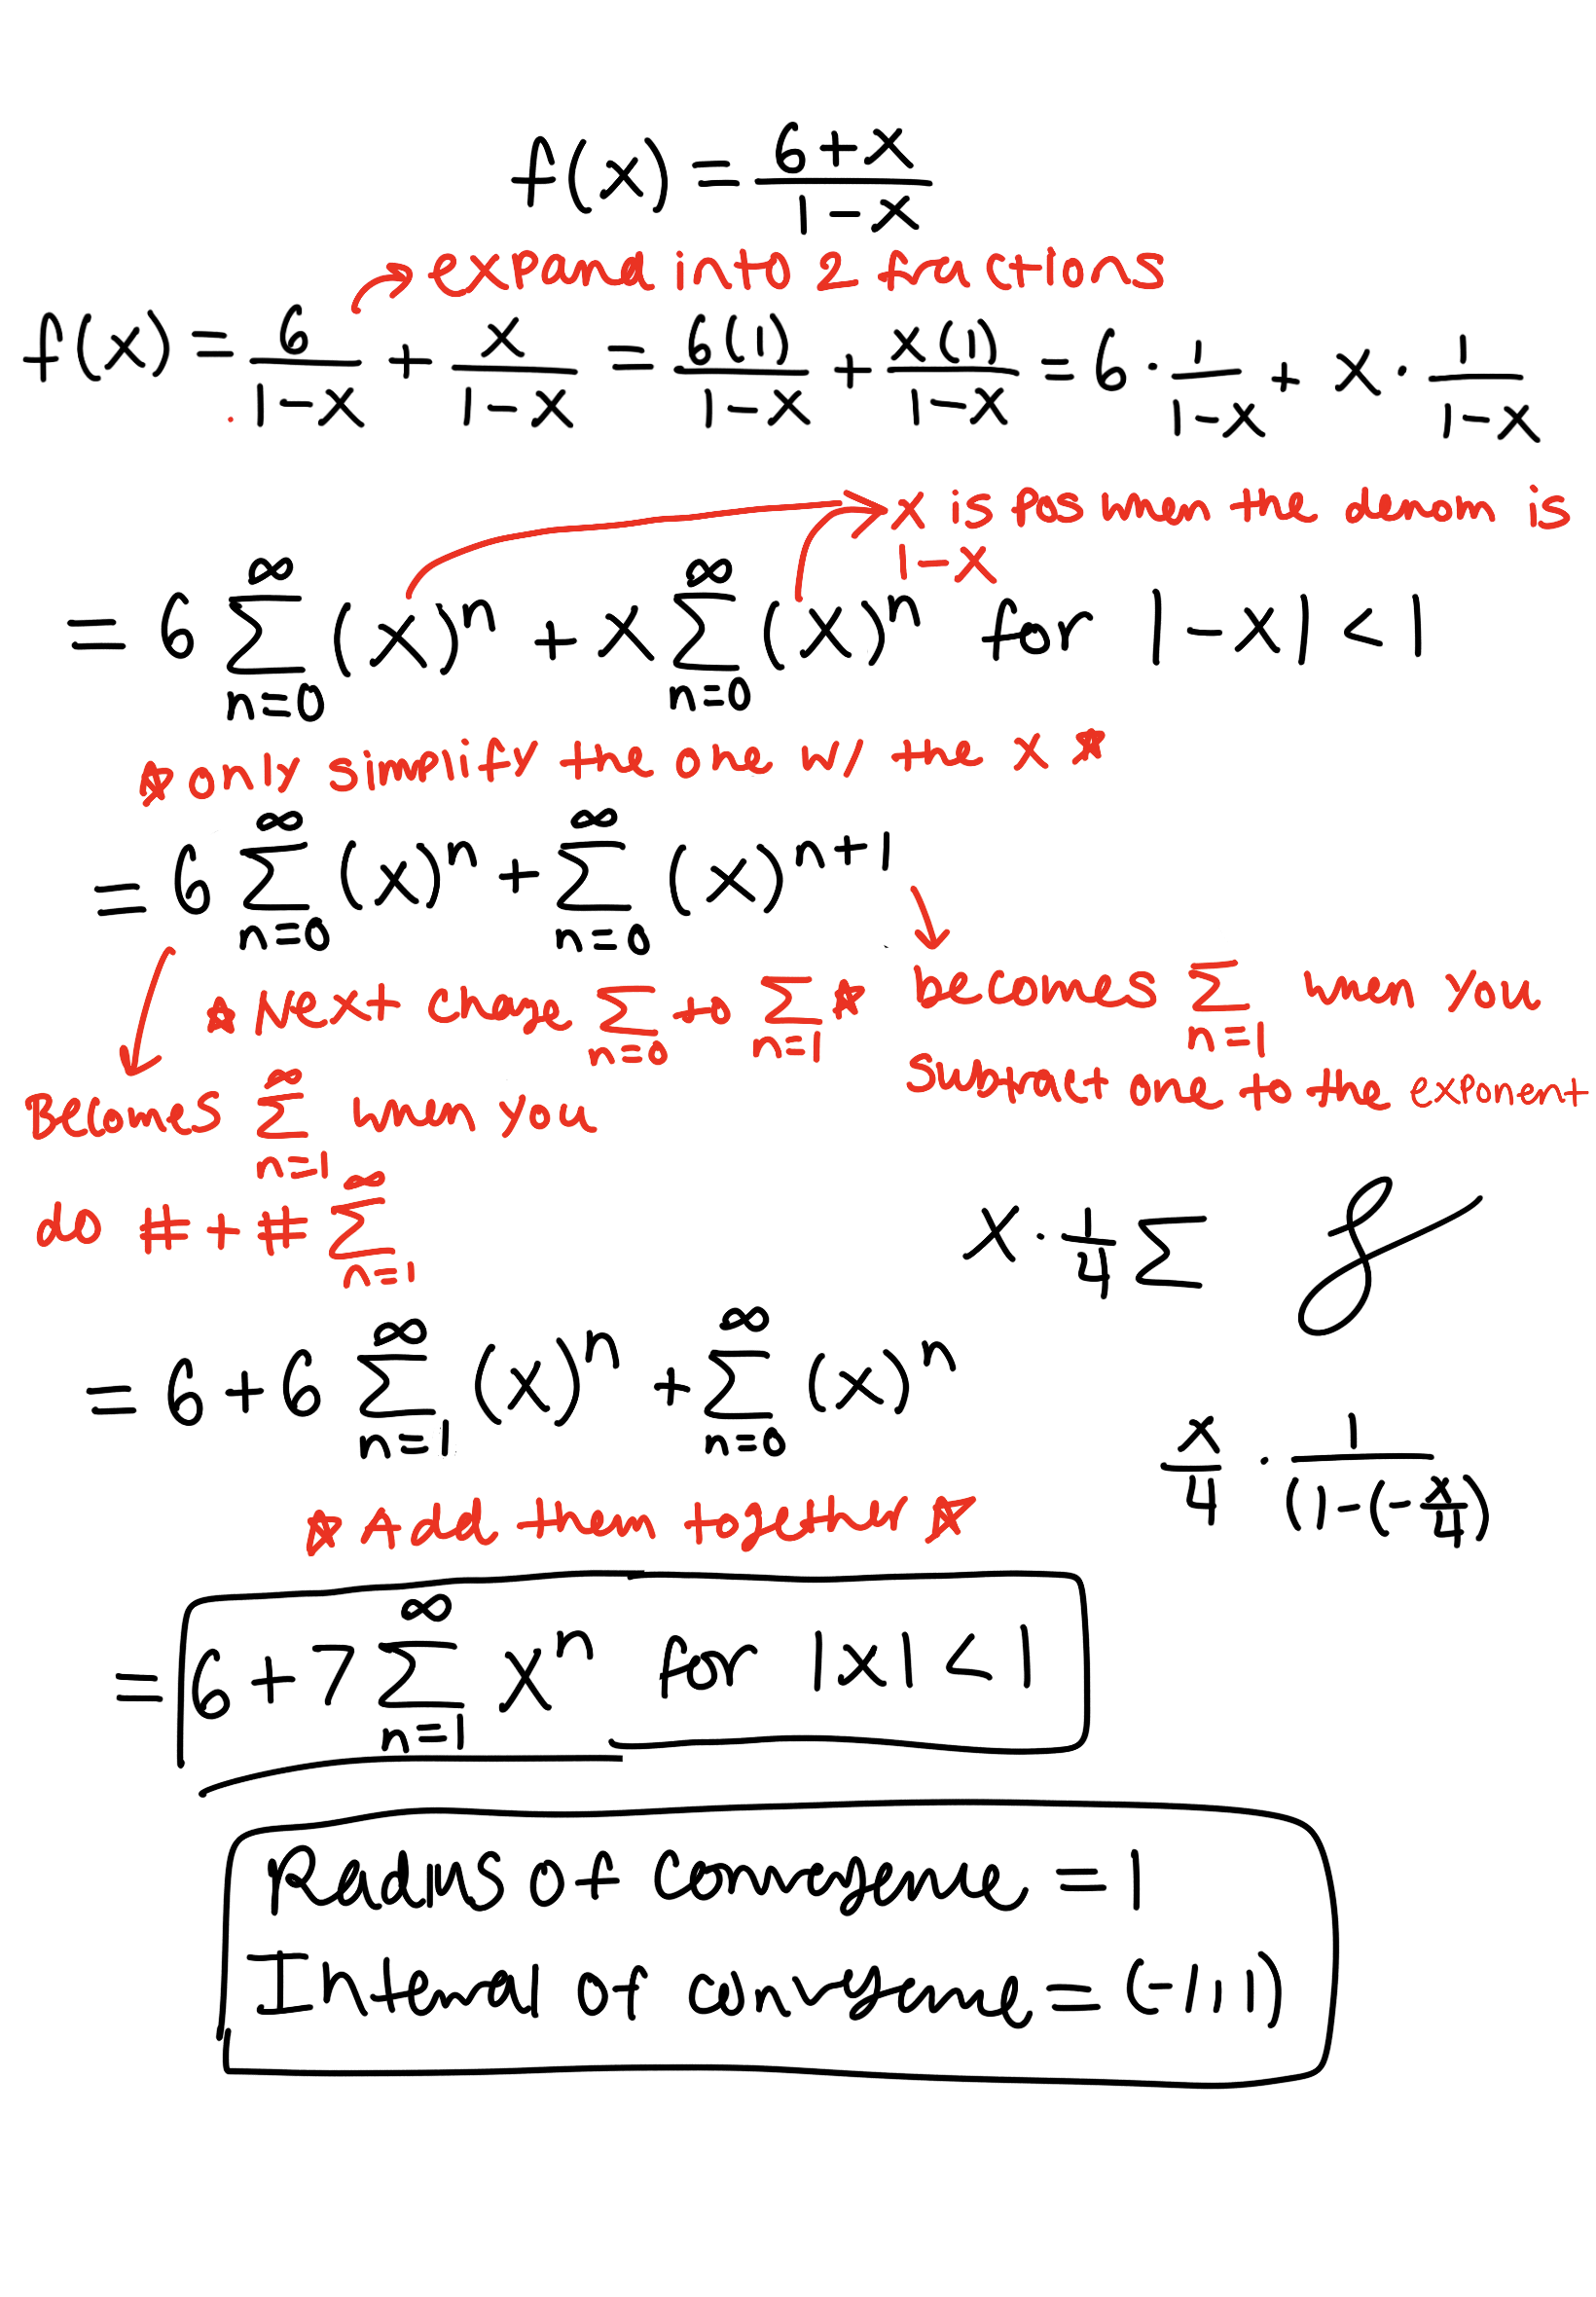 f(x) = (6+x)/(1-x)
expand into 2 fractions
f(x) = 6/(1-x) + x/(1-x) = 6(1)/(1-x) + x(1)/(1-x) = 6 · 1/(1-x) + x · 1/(1-x)
x is pos when the denom is
1-x
= 6 ∑_{n=0}^{∞} (x)^n + x ∑_{n=0}^{∞} (x)^n for |-x| < 1
☆ only simplify the one w/ the x ☆
= 6 ∑_{n=0}^{∞} (x)^n + ∑_{n=0}^{∞} (x)^{n+1}
☆ Next change ∑_{n=0} to ∑_{n=1} ☆
becomes ∑_{n=1} when you
subtract one to the exponent
Becomes ∑_{n=1}^{∞} when you
do # + # ∑_{n=1}^{∞}
x · 1/4 ∑
= 6 + 6 ∑_{n=1}^{∞} (x)^n + ∑_{n=0}^{∞} (x)^n
x/4 · 1/(1-(-x/4))
☆ Add them together ☆
= 6 + 7 ∑_{n=1}^{∞} x^n for |x| < 1
Radius of convergence = 1
Interval of convergence = (-1,1)